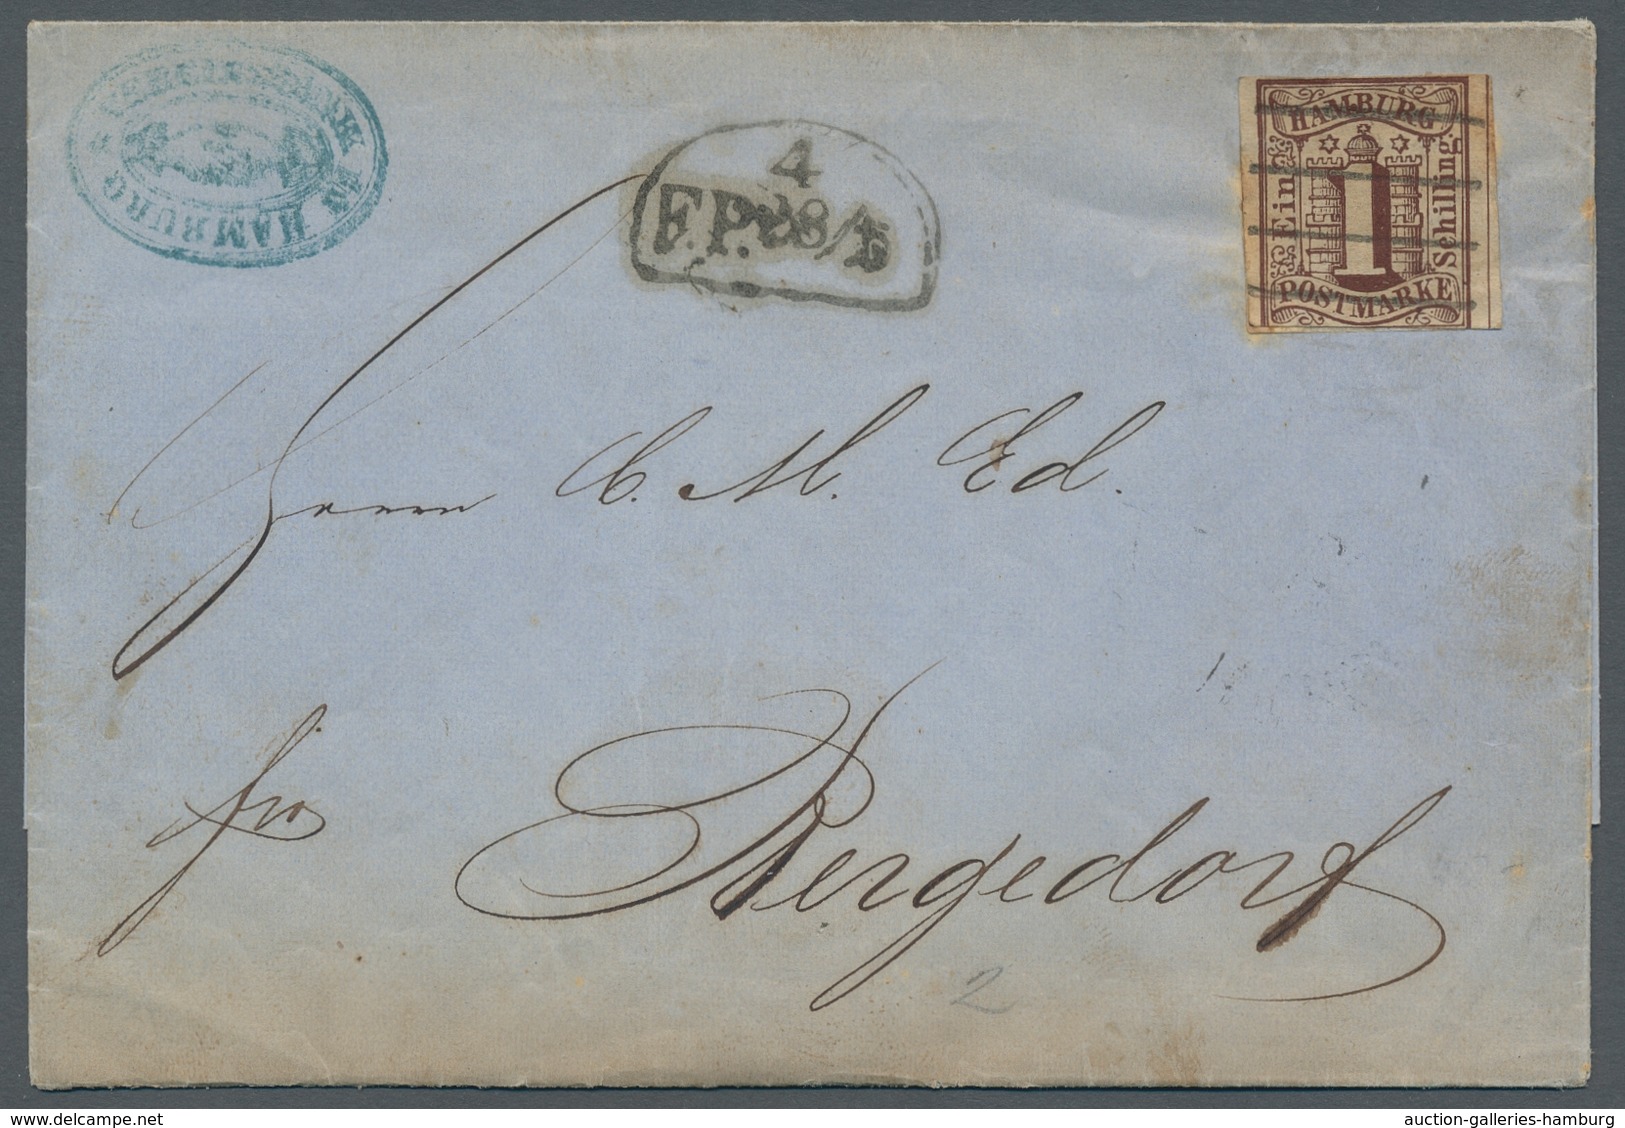 HAMBURG
Ein
Schilling
1
POSTMARKE
4
F.P. 28/4
HAMBURG
Herrn C. M. Ed.
fro Bergedorf
2
www.delcampe.net
auction-galleries-hamburg